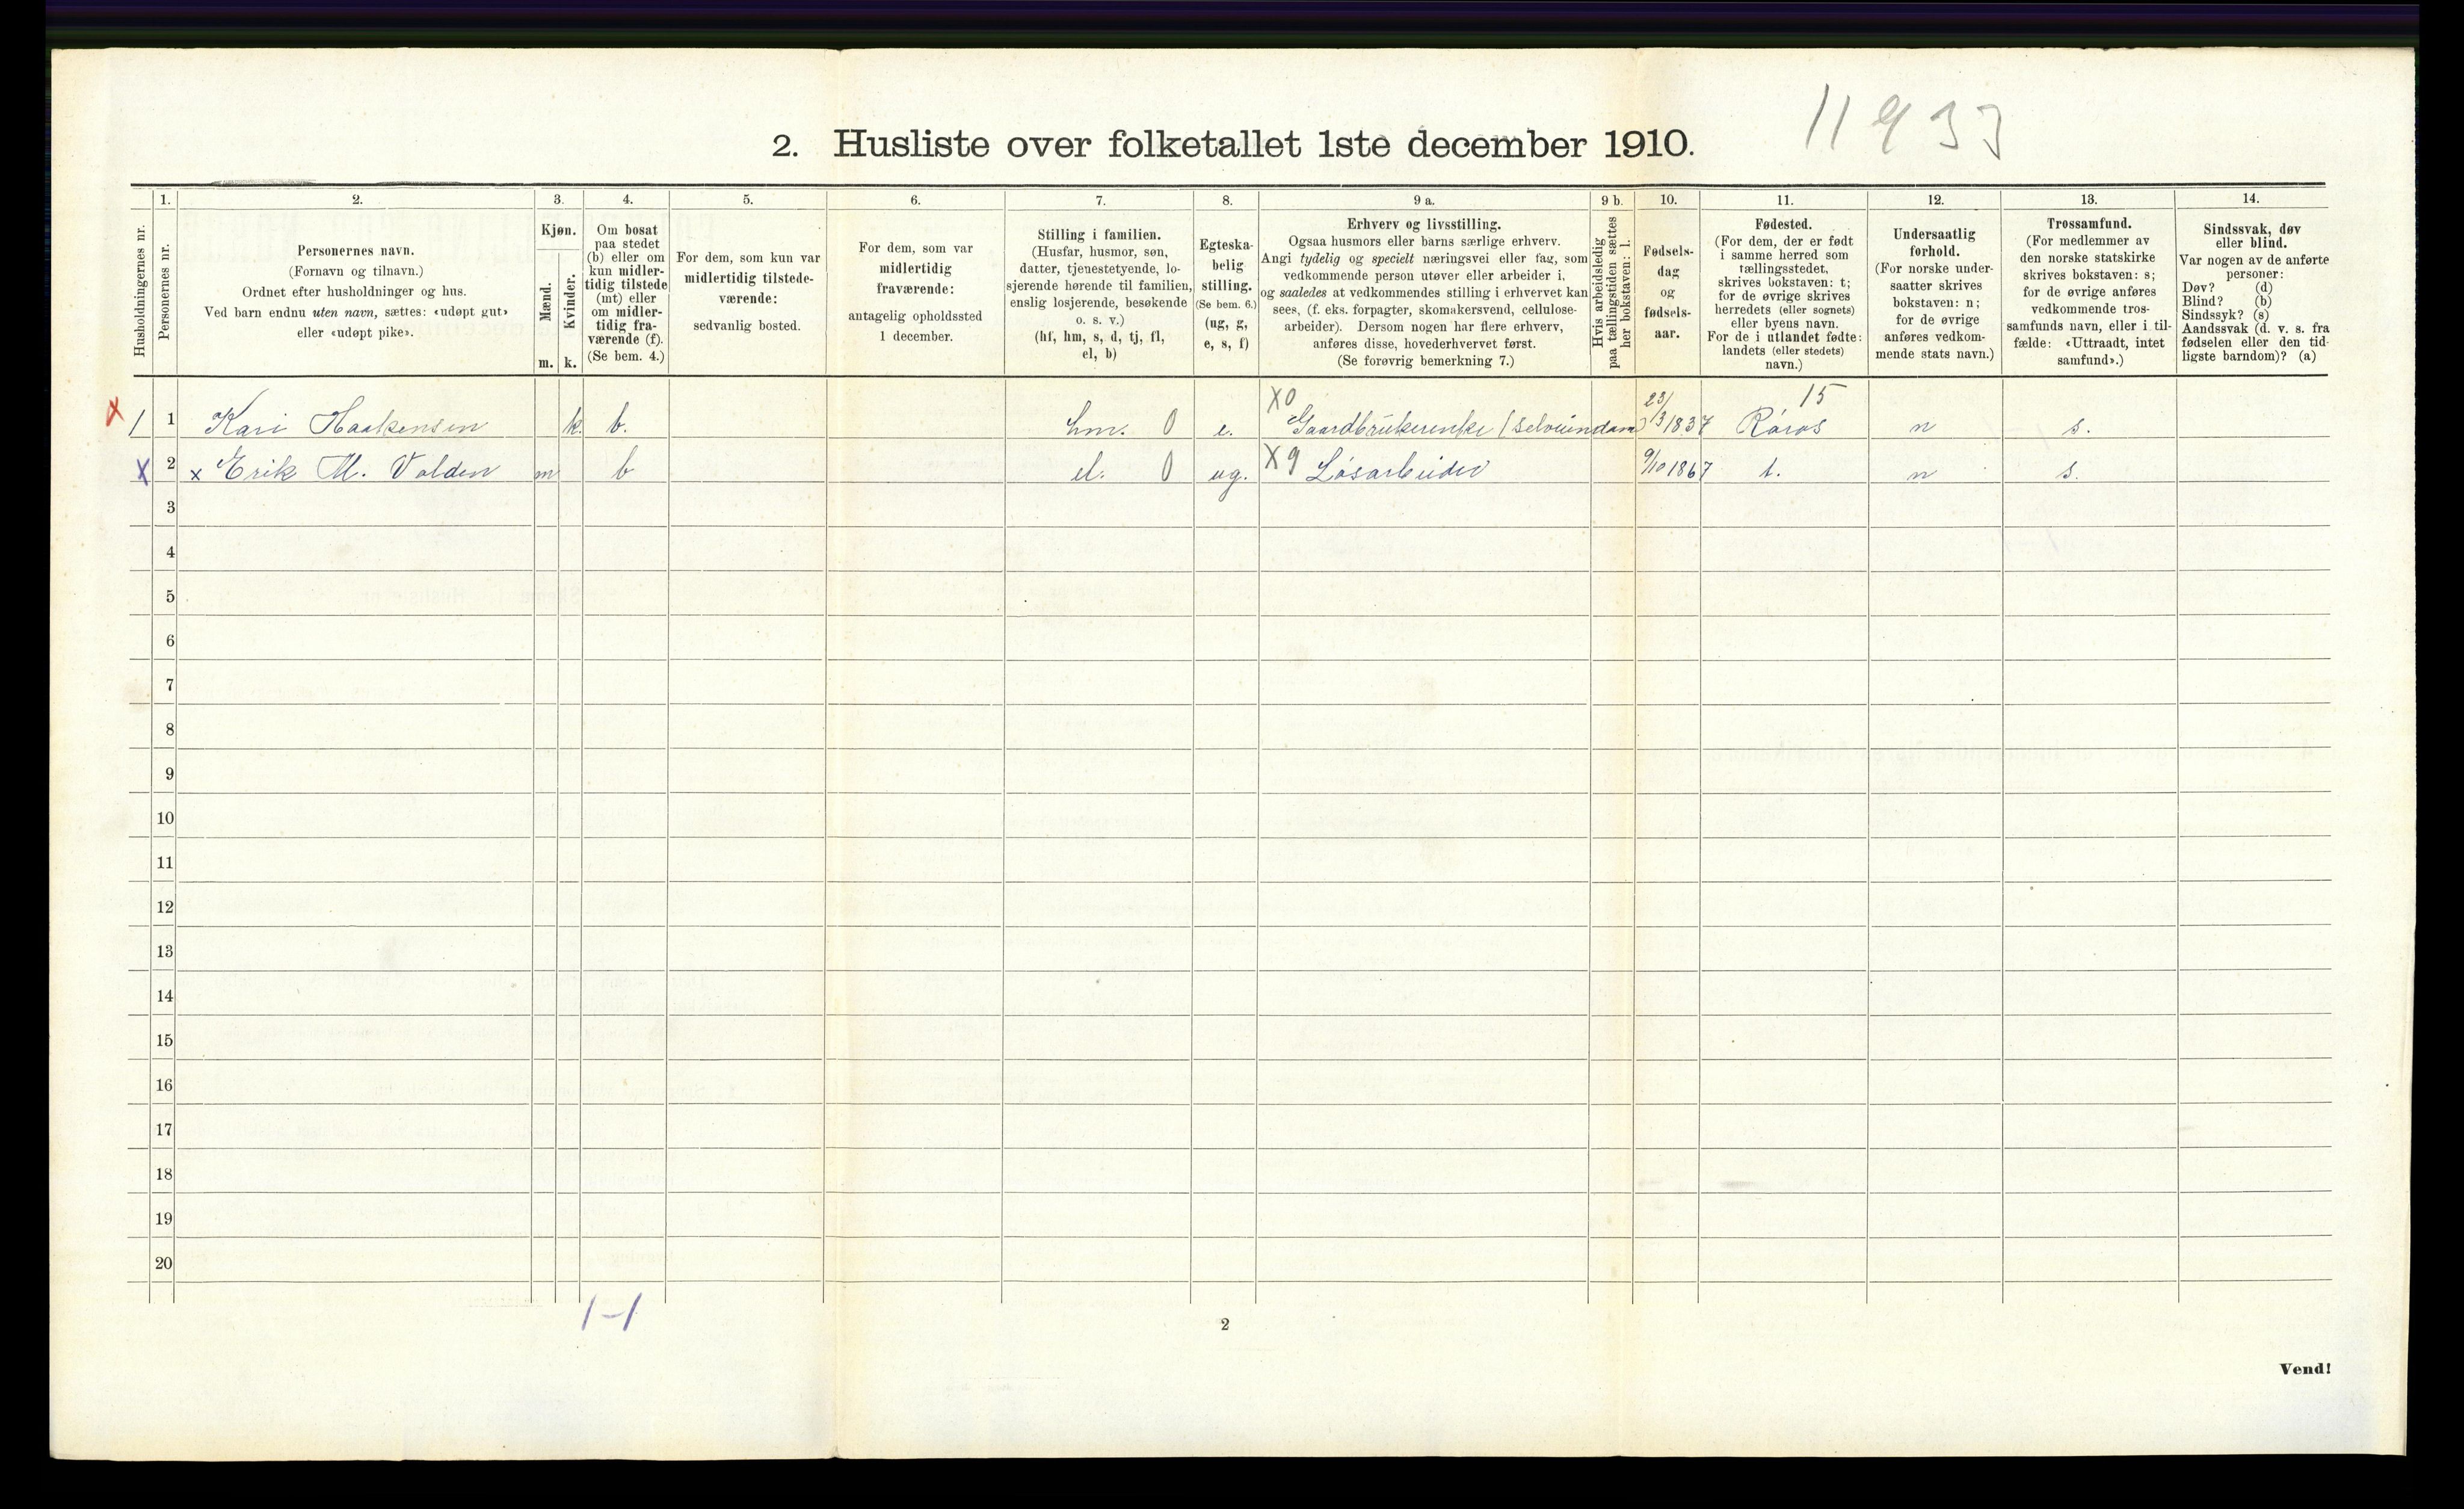 11933
2. Husliste over folketallet 1ste december 1910.
Husholdningernes nr.
1.
Personernes nr.
2.
Personernes navn.
(Fornavn og tilnavn.)
Ordnet efter husholdninger og hus.
Ved barn endnu uten navn, sættes: «udøpt gut»
eller «udøpt pike».
3.
Kjøn.
Mænd.
m.
Kvinder.
k.
4.
Om bosat
paa stedet
(b) eller om
kun midler-
tidig tilstede
(mt) eller
om midler-
tidig fra-
værende (f).
(Se bem. 4.)
5.
For dem, som kun var
midlertidig tilstede-
værende:
sedvanlig bosted.
6.
For dem, som var
midlertidig
fraværende:
antagelig opholdssted
1 december.
7.
Stilling i familien.
(Husfar, husmor, søn,
datter, tjenestetyende, lo-
sjerende hørende til familien,
enslig losjerende, besøkende
o. s. v.)
(hf, hm, s, d, tj, fl,
el, b)
8.
Egteska-
belig
stilling.
(Se bem. 6.)
(ug, g,
e, s, f)
9 a.
Erhverv og livsstilling.
Ogsaa husmors eller barns særlige erhverv.
Angi tydelig og specielt næringsvei eller fag, som
vedkommende person utøver eller arbeider i,
og saaledes at vedkommendes stilling i erhvervet kan
sees, (f. eks. forpagter, skomakersvend, cellulose-
arbeider). Dersom nogen har flere erhverv,
anføres disse, hovederhvervet først.
(Se forøvrig bemerkning 7.)
9 b.
Hvis arbeidsledig
paa tællingstiden sættes
her bokstaven: l.
10.
Fødsels-
dag
og
fødsels-
aar.
11.
Fødested.
(For dem, der er født
i samme herred som
tællingsstedet,
skrives bokstaven: t;
for de øvrige skrives
herredets (eller sognets)
eller byens navn.
For de i utlandet fødte:
landets (eller stedets)
navn.)
12.
Undersaatlig
forhold.
(For norske under-
saatter skrives
bokstaven: n;
for de øvrige
anføres vedkom-
mende stats navn.)
13.
Trossamfund.
(For medlemmer av
den norske statskirke
skrives bokstaven: s;
for de øvrige anføres
vedkommende tros-
samfunds navn, eller i til-
fælde: «Uttraadt, intet
samfund».)
14.
Sindssvak, døv
eller blind.
Var nogen av de anførte
personer:
Døv? (d)
Blind? (b)
Sindssyk? (s)
Aandssvak (d. v. s. fra
fødselen eller den tid-
ligste barndom)? (a)
X0 15
x 1 1 Kari Haakensen k. b. hm. 0 e. Gaardbrukerenke (selveiendom) 23/3 1837 Røros n s.
X 2 x Erik M. Volden m b el. 0 ug. X9 Løsarbeider 9/10 1867 t. n s.
3
4
5
6
7
8
9
10
11
12
13
14
15
16
17
18
19
20
1-1
2
Vend!